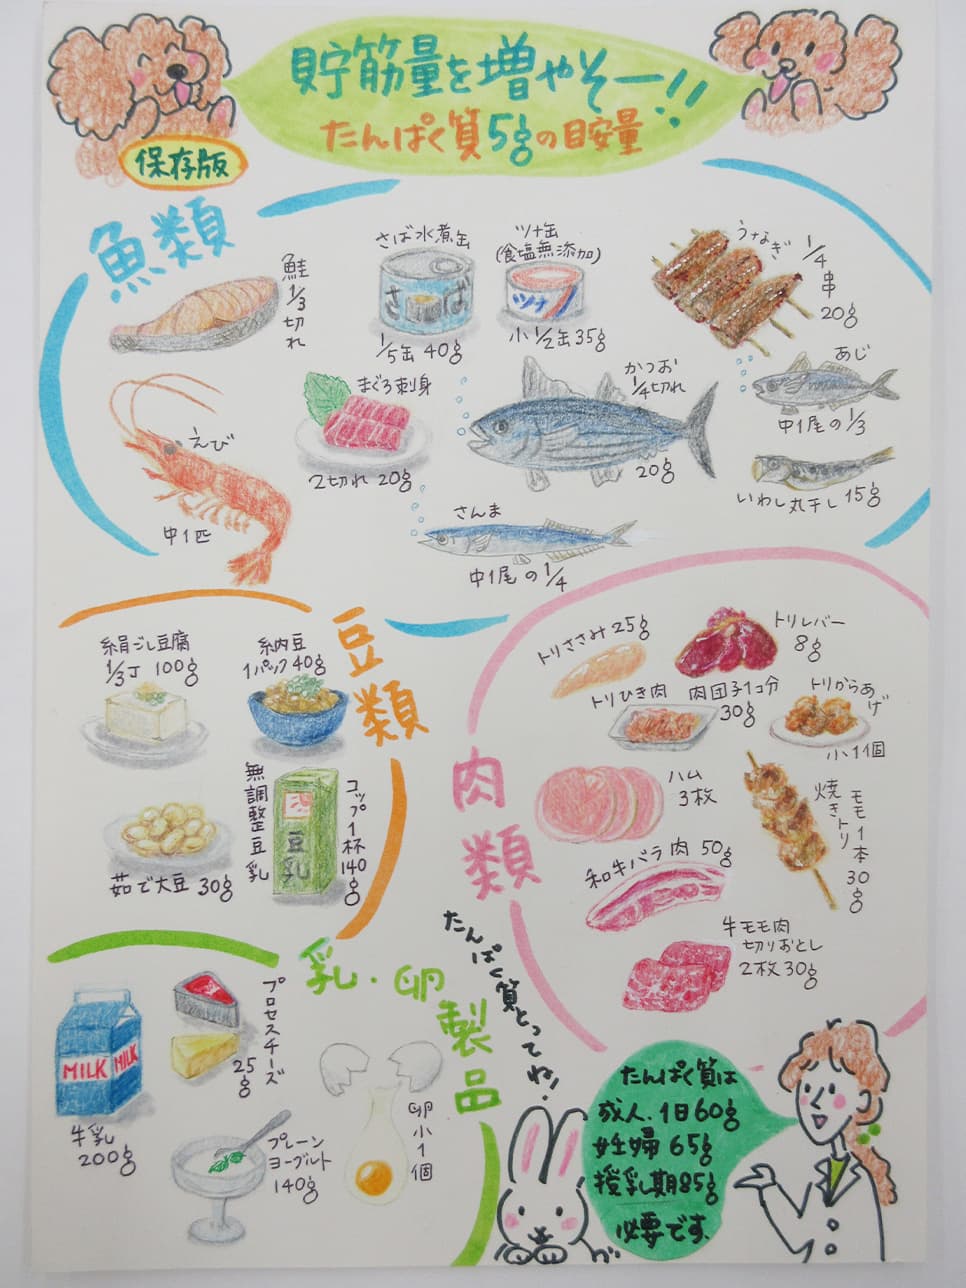 貯筋量を増やそー!!
たんぱく質5gの目安量
保存版
魚類
鮭
1/3
切れ
さば水煮缶
さば
1/5缶 40g
ツナ缶
(食塩無添加)
ツナ
小 1/2缶 35g
うなぎ
1/4
串
20g
まぐろ刺身
2切れ 20g
かつお
1/4切れ
20g
あじ
中1尾の1/3
いわし丸干し 15g
えび
中1匹
さんま
中1尾の1/4
豆類
絹ごし豆腐
1/3丁 100g
納豆
1パック 40g
茹で大豆 30g
無調整豆乳
豆乳
コップ1杯140g
肉類
トリささみ 25g
トリレバー
8g
トリひき肉
肉団子1コ分
30g
トリからあげ
小1個
ハム
3枚
焼きトリ
モモ1本30g
和牛バラ肉 50g
牛モモ肉
切りおとし
2枚 30g
乳・卵製品
MILK MILK
牛乳
200g
プロセスチーズ
25g
プレーン
ヨーグルト
140g
卵小1個
たんぱく質とってね!
たんぱく質は
成人.1日60g
妊婦 65g
授乳期85g
必要です.